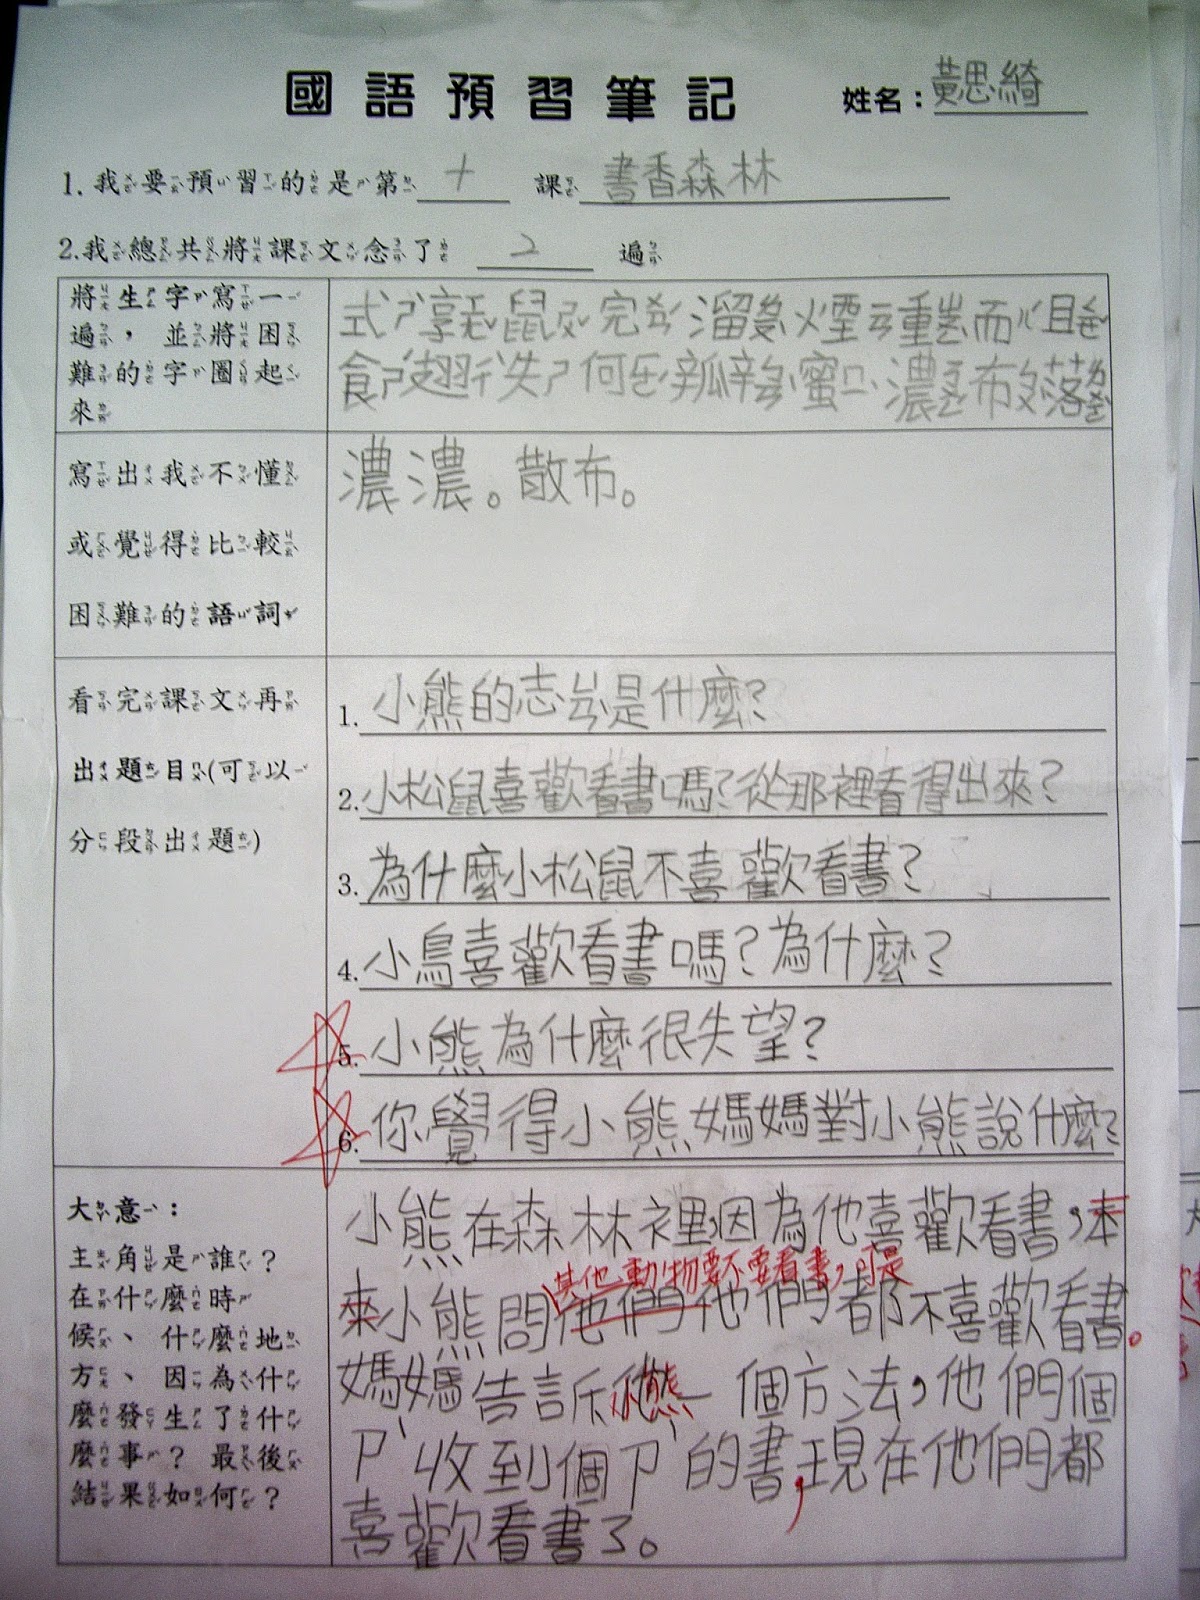 國語預習筆記
姓名：黃思綺
1.我要預習的是第 十 課 書香森林
2.我總共將課文念了 2 遍
將生字寫一
遍，並將困
難的字圈起
來
式ㄕˋ 鼠ㄕㄨˇ 完ㄨㄢˊ 溜ㄌㄧㄡ 煙ㄧㄢ 而ㄦˊ 且ㄑㄧㄝˇ
食ㄕˊ 翅ㄔˋ 失ㄕ 何ㄏㄜˊ 瓣ㄅㄢˋ 蜜ㄇㄧˋ 濃ㄋㄨㄥˊ 布ㄅㄨˋ 落ㄌㄨㄛˋ
寫出我不懂
或覺得比較
困難的語詞
濃濃。散布。
看完課文再
出題目(可以
分段出題)
1.小熊的志ㄓˋ是什麼？
2.小松鼠喜歡看書嗎？從那裡看得出來？
3.為什麼小松鼠不喜歡看書？
4.小鳥喜歡看書嗎？為什麼？
5.小熊為什麼很失望？
6.你覺得小熊媽媽對小熊說什麼？
大意：
主角是誰？
在什麼時
候、什麼地
方、因為什
麼發生了什
麼事？最後
結果如何？
小熊在森林裡，因為他喜歡看書，本
其他動物要不要看書，可是
來小熊問他們他們都不喜歡看書。
媽媽告訴小熊一個方法，他們個
ㄕˋ收到個ㄕˋ的書，現在他們都
喜歡看書了。